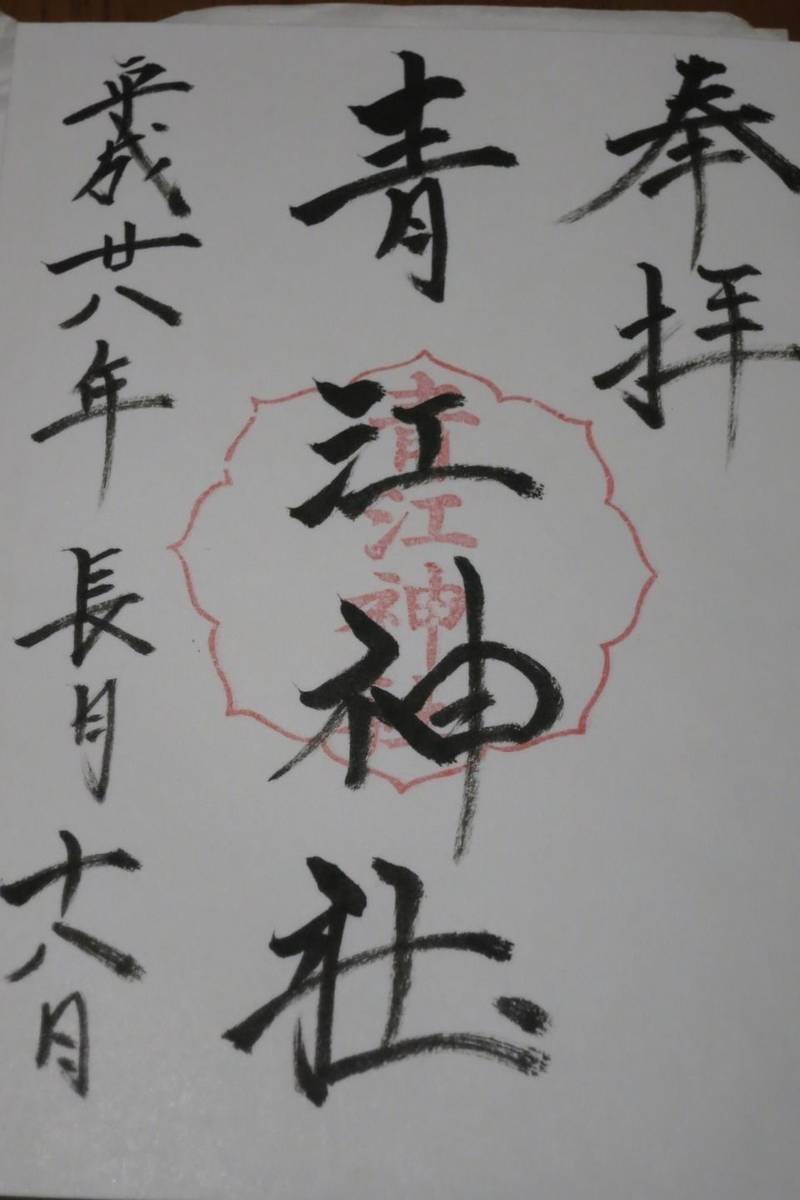 奉拝
青江神社
青江神社
平成廿八年 長月 十八日